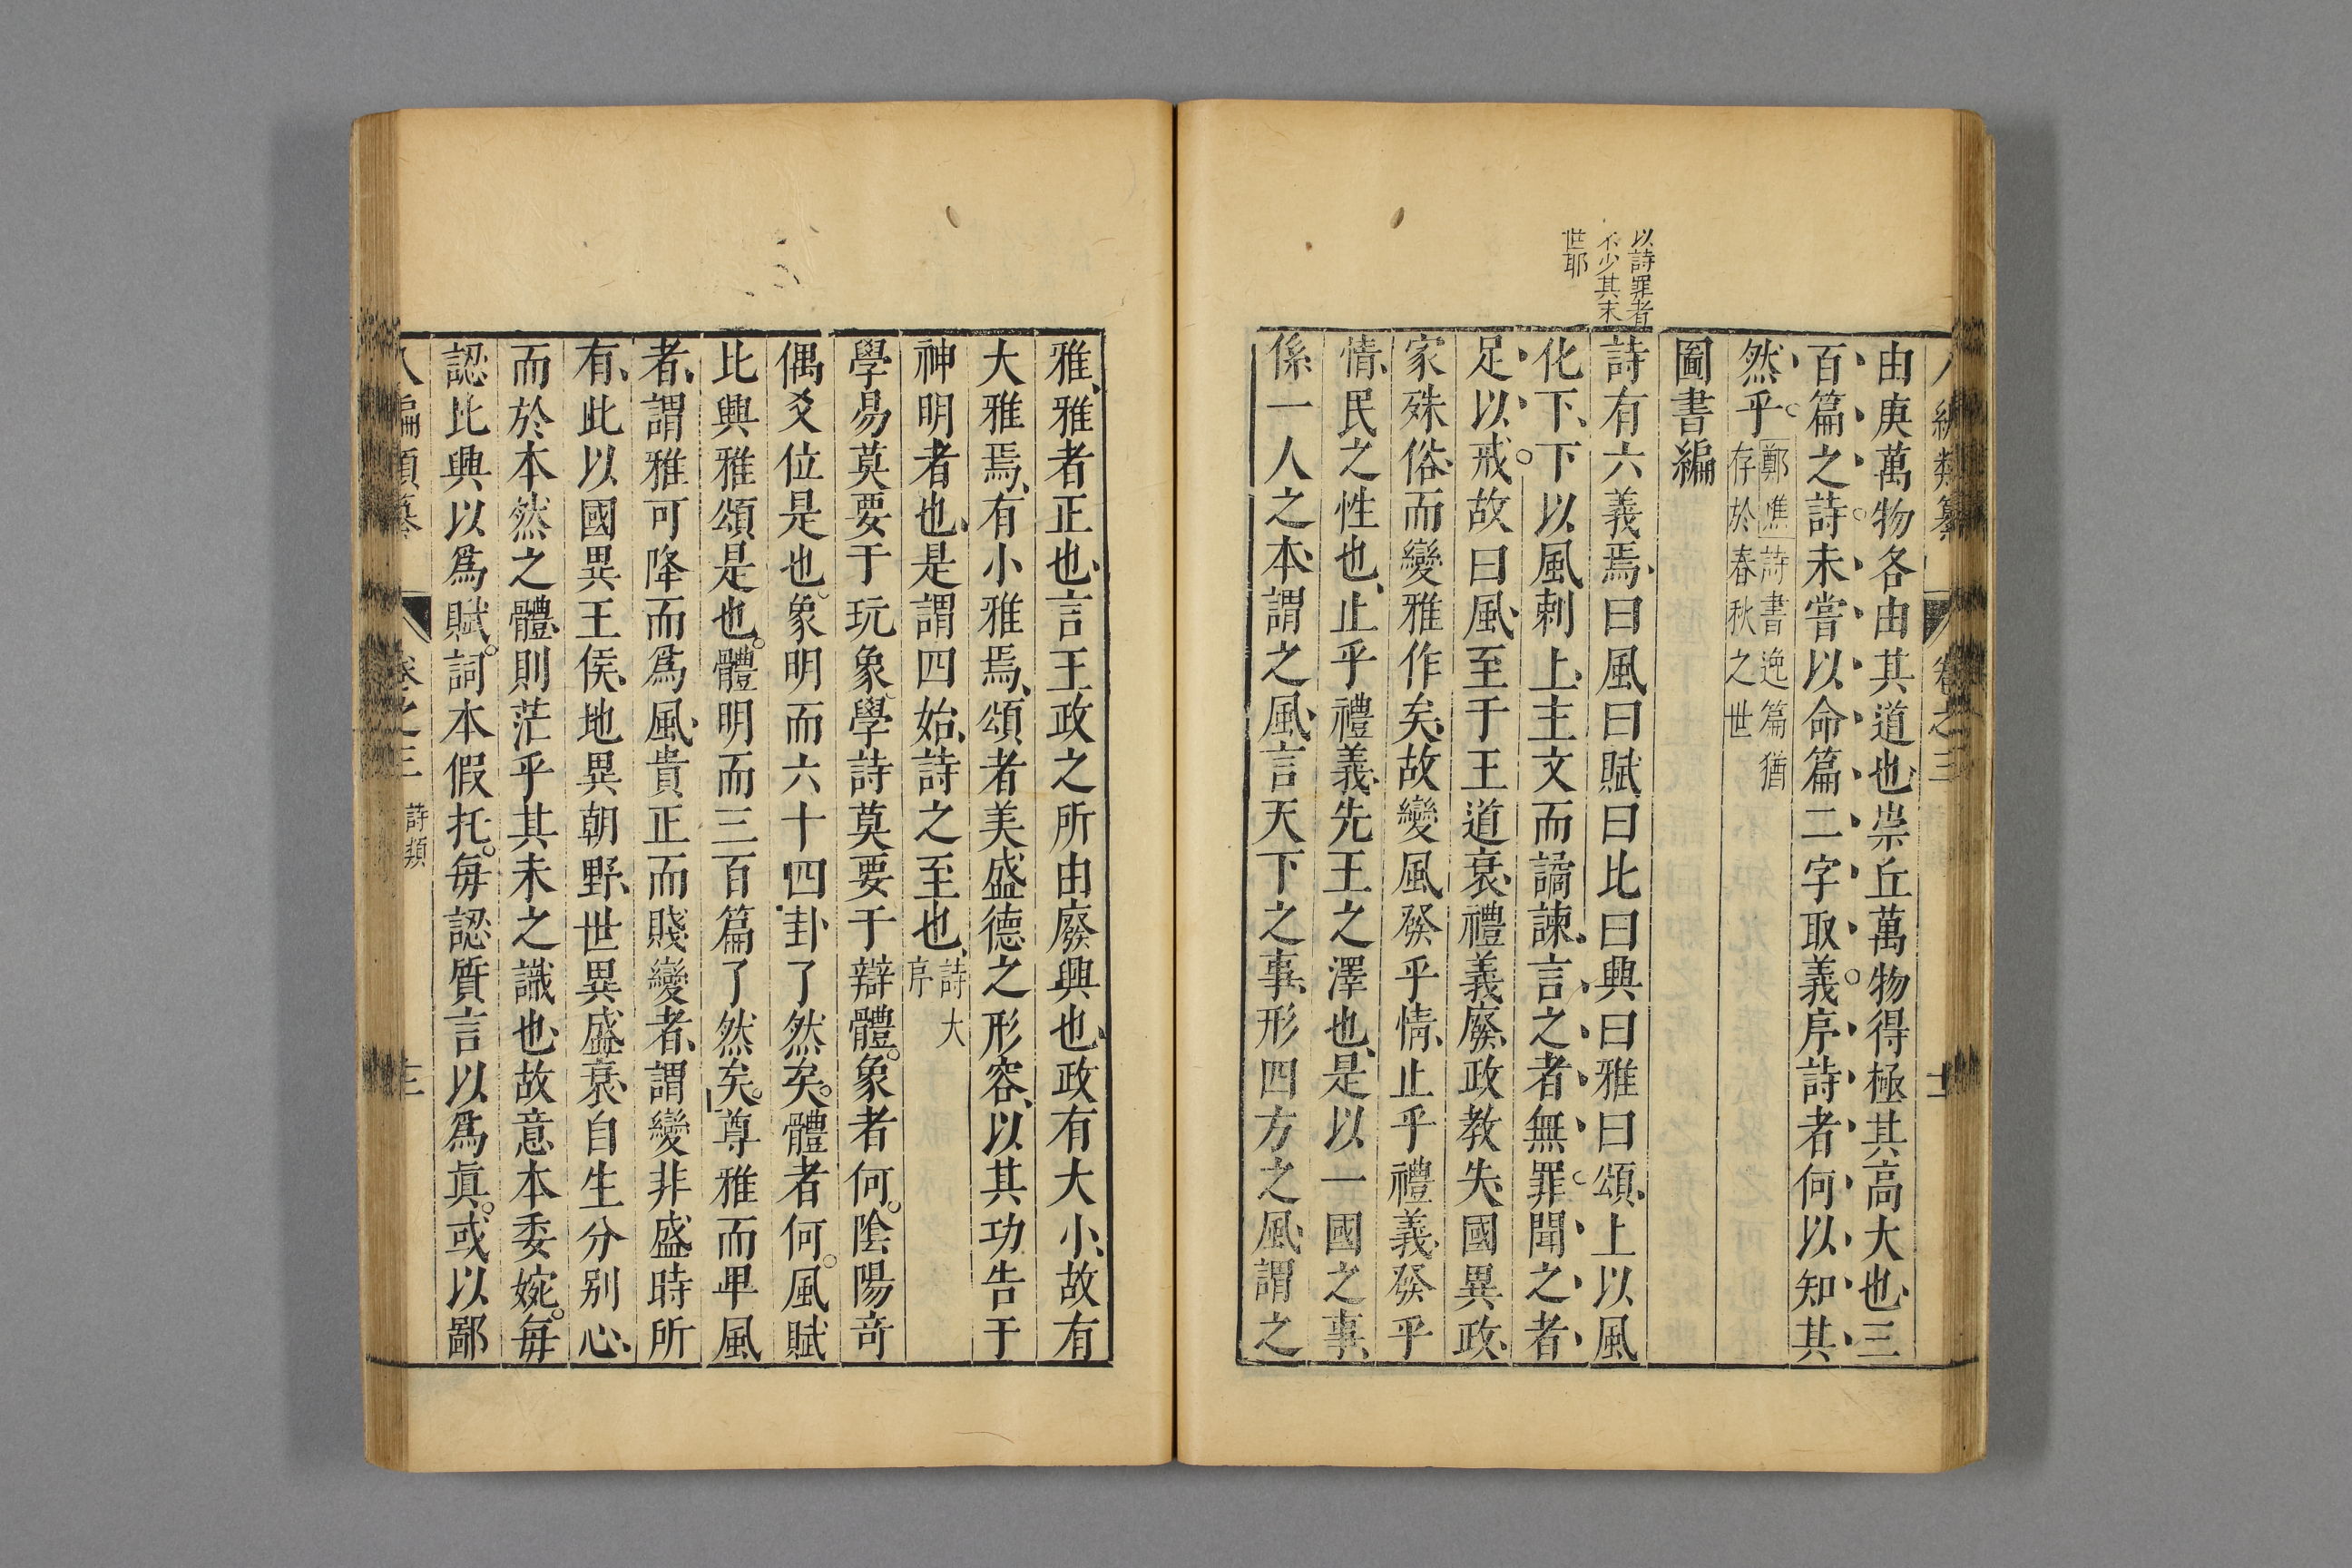 八編類纂 卷之三 十二
由庚萬物各由其道也崇丘萬物得極其高大也三
百篇之詩未嘗以命篇二字取義序詩者何以知其
然乎鄭樵詩書逸篇猶
存於春秋之世
圖書編
以詩罪者
不少其末
世耶
詩有六義焉曰風曰賦曰比曰興曰雅曰頌上以風
化下下以風刺上主文而譎諫言之者無罪聞之者
足以戒故曰風至于王道衰禮義廢政教失國異政
家殊俗而變雅作矣故變風發乎情止乎禮義發乎
情民之性也止乎禮義先王之澤也是以一國之事
係一人之本謂之風言天下之事形四方之風謂之
雅雅者正也言王政之所由廢興也政有大小故有
大雅焉有小雅焉頌者美盛德之形容以其功告于
神明者也是謂四始詩之至也詩大
序
學易莫要于玩象學詩莫要于辯體象者何陰陽奇
偶爻位是也象明而六十四卦了然矣體者何風賦
比興雅頌是也體明而三百篇了然矣尊雅而甲風
者謂雅可降而爲風貴正而賤變者謂變非盛時所
有此以國異王侯地異朝野世異盛衰自生分別心
而於本然之體則茫乎其未之識也故意本委婉每
認比興以爲賦詞本假托每認質言以爲眞或以鄙
八編類纂 卷之三 詩類 十三